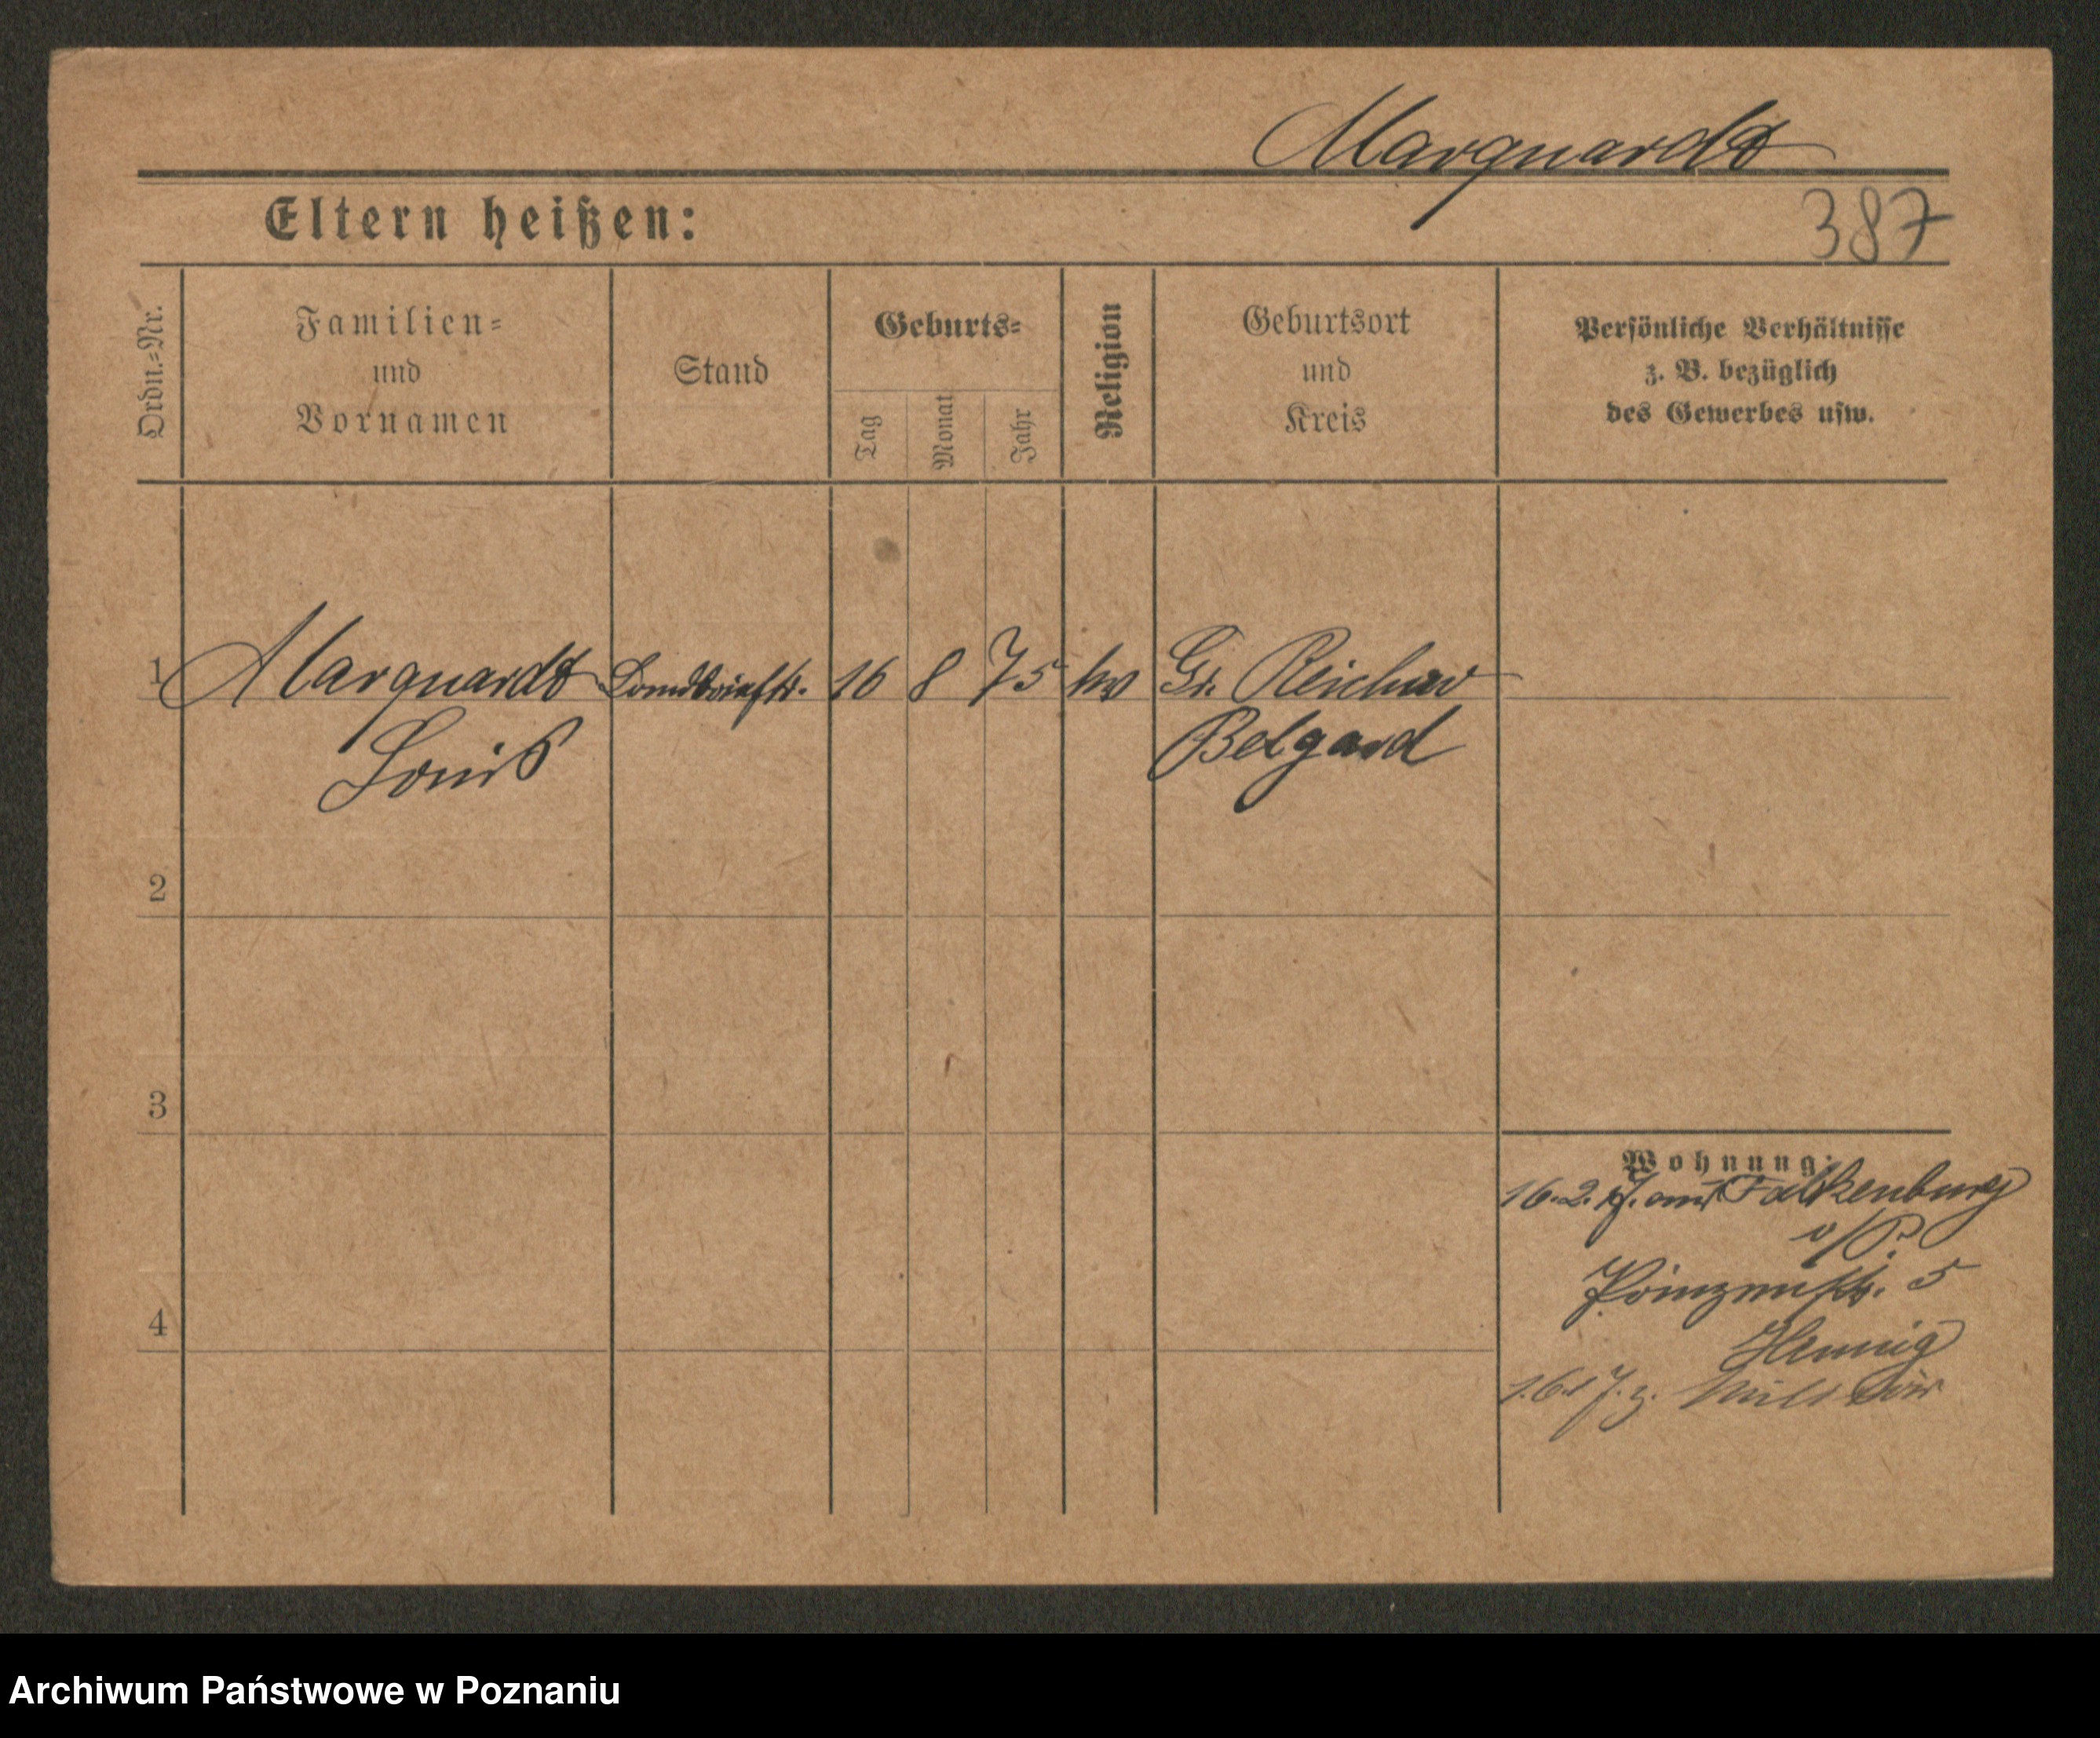 Marquardt
Eltern heißen:
387
Ordn.=Nr.
Familien=
und
Vornamen
Stand
Geburts=
Tag
Monat
Jahr
Religion
Geburtsort
und
Kreis
Persönliche Verhältnisse
z. B. bezüglich
des Gewerbes usw.
1 Marquardt 16 8 75 Gr. Reichow
Louis Belgard
2
3
4
Wohnung:
16.2.17. aus Falkenburg
i/P.
Prinzenstr. 5
Hennig
1.6.17. z. Militär
Archiwum Państwowe w Poznaniu